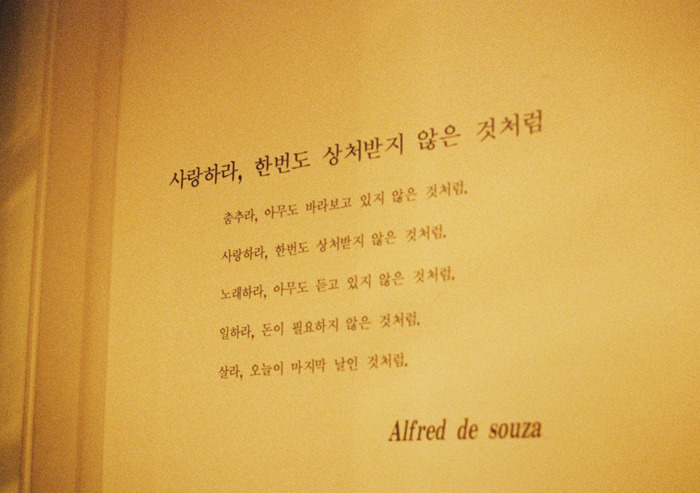 사랑하라, 한번도 상처받지 않은 것처럼
춤추라, 아무도 바라보고 있지 않은 것처럼.
사랑하라, 한번도 상처받지 않은 것처럼.
노래하라, 아무도 듣고 있지 않은 것처럼.
일하라, 돈이 필요하지 않은 것처럼.
살라, 오늘이 마지막 날인 것처럼.
Alfred de souza